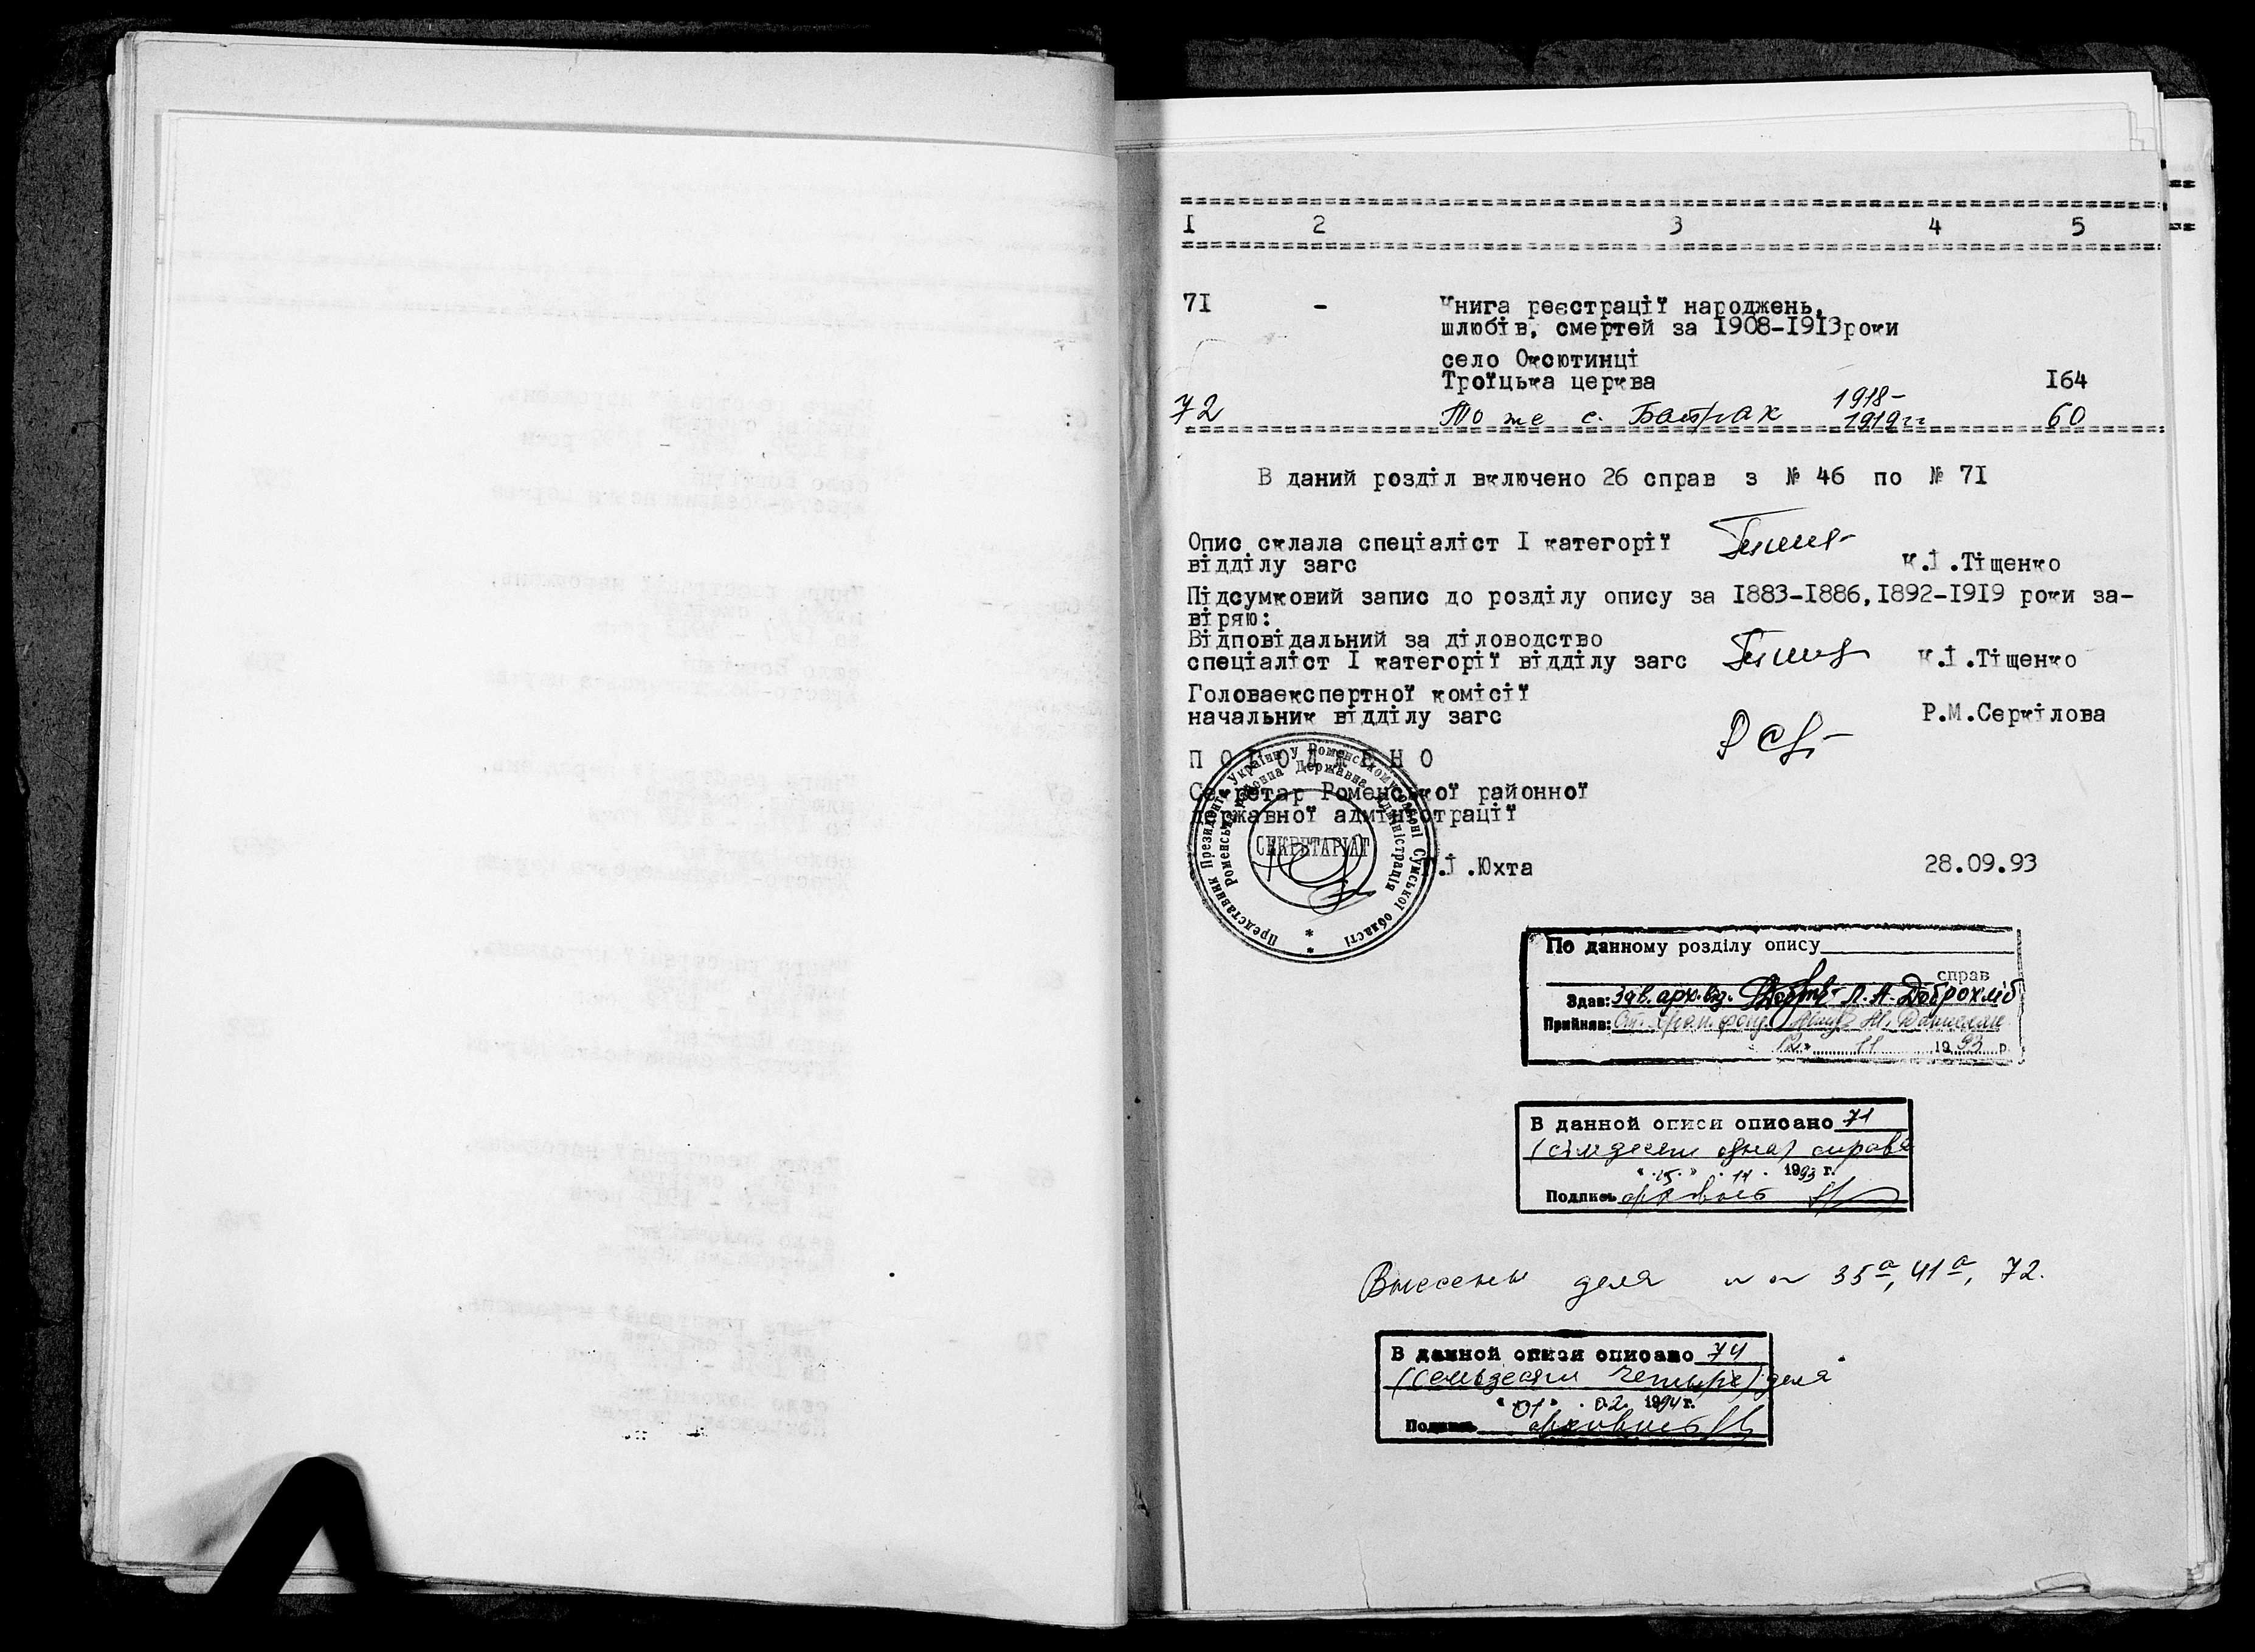 I 2 3 4 5
7I - Книга реєстрації народжень,
шлюбів, смертей за I908-I9I3роки
село Оксютинці
Троїцька церква I64
72 То же с. Батрак 1918-
1919гг 60
В даний розділ включено 26 справ з № 46 по № 7I
Опис склала спеціаліст I категорії
відділу загс К.І.Тіщенко
Підсумковий запис до розділу опису за I883-I886,I892-I9I9 роки за-
віряю:
Відповідальний за діловодство
спеціаліст I категорії відділу загс К.І.Тіщенко
Головаекспертної комісії
начальник відділу загс Р.М.Серкілова
П О Г О Д Ж Е Н О
Секретар Роменської районної
державної адміністрації
.І.Юхта 28.09.93
Представник Президента України у Роменському районі Сумської області
Роменська районна Державна адміністрація
СЕКРЕТАРІАТ
По данному розділу опису
справ
Здав: Зав. арх. від. Л. А. Доброхліб
Прийняв:
12 11 1993 р.
В данной описи описано 71
(сімдесят одна) справа
"15" 11 1993 г.
Подпись архивист
Внесены дела №№ 35а, 41а, 72.
В данной описи описано 74
(семьдесят четыре) дела
"01" 02. 1994 г.
Подпись архивист